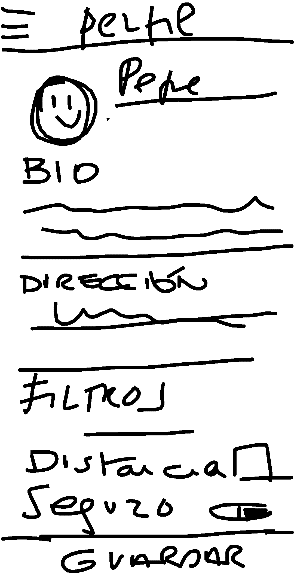 Perfil
Pepe
BIO
DIRECCIÓN
FILTROS
Distancia
Seguro
GUARDAR